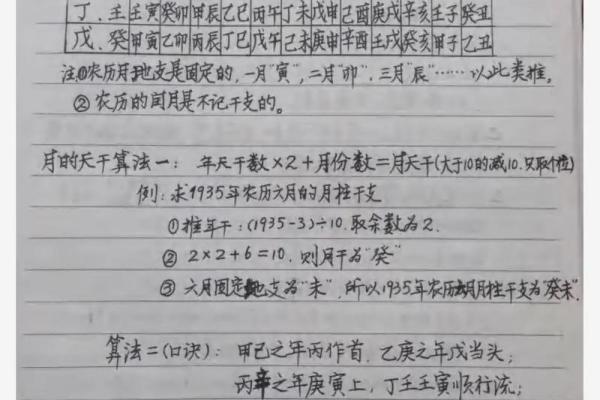 丁、壬 壬寅 癸卯 甲辰 乙巳 丙午 丁未 戊申 己酉 庚戌 辛亥 壬子 癸丑
戊、癸 甲寅 乙卯 丙辰 丁巳 戊午 己未 庚申 辛酉 壬戌 癸亥 甲子 乙丑
注①农历月地支是固定的,一月"寅",二月"卯",三月"辰"……以此类推。
②农历的闰月是不记干支的。
月的天干算法一:年天干数×2+月份数=月天干(大于10的减10.只取个位)
例:求1935年农历六月的月柱干支
①推年干:(1935-3)÷10.取余数为2.
② 2×2+6=10.则月干为"癸"
③ 六月固定地支为"未".所以1935年农历六月月柱干支为"癸未".
算法二(口诀):甲己之年丙作首,乙庚之年戊当头;
丙辛之年庚寅上,丁壬壬寅顺行流;